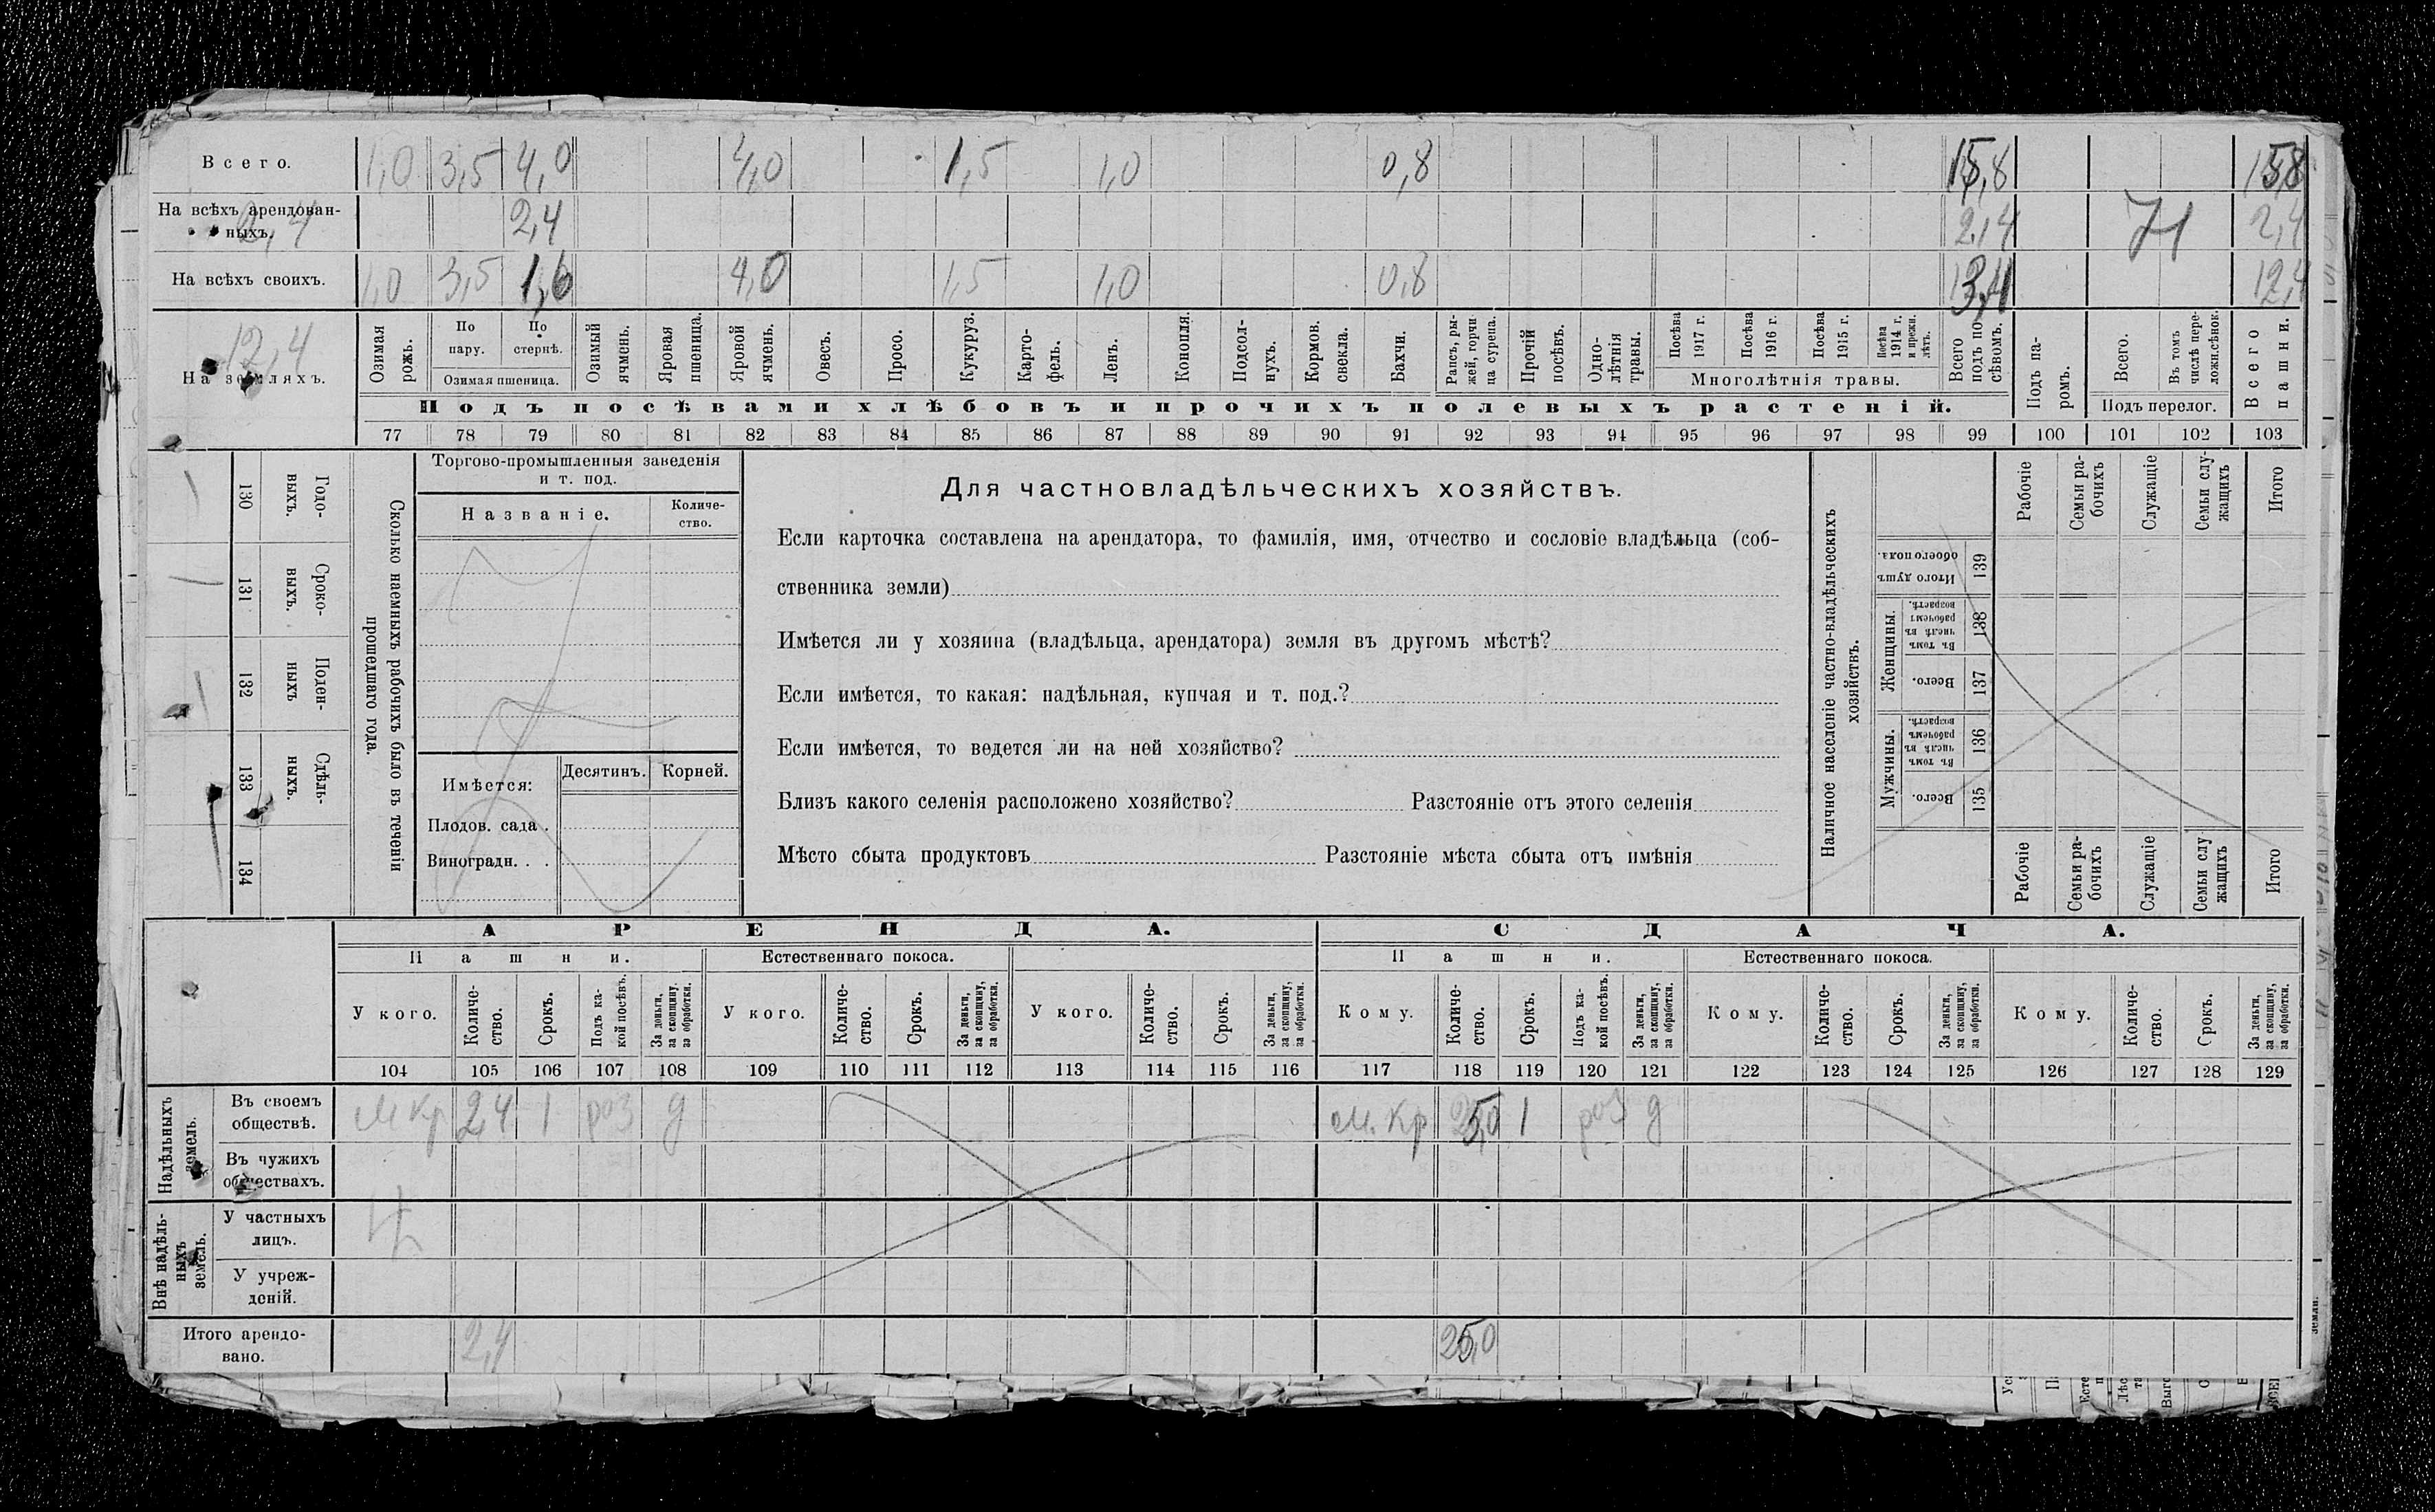 Всего. 1,0 3,5 4,0 4,0 1,5 1,0 0,8 15,8 15,8
На всѣхъ арендован-
ныхъ. 2,4 2,4 2,4 2,4
На всѣхъ своихъ. 1,0 3,5 1,6 4,0 1,5 1,0 0,8 13,4 12,4
12,4
На земляхъ.
Озимая рожь.
По пару.
По стернѣ.
Озимая пшеница.
Озимый ячмень.
Яровая пшеница.
Яровой ячмень.
Овесъ.
Просо.
Кукуруз.
Карто-
фель.
Ленъ.
Конопля.
Подсол-
нухъ.
Кормов. свекла.
Бахчи.
Рапсъ, ры-
жей, горчи-
ца сурепа.
Прочій посѣвъ.
Одно-
лѣтнія травы.
Посѣва 1917 г.
Посѣва 1916 г.
Посѣва 1915 г.
Посѣва 1914 г. и прежн. лѣтъ.
Многолѣтнія травы.
Всего подъ по-
сѣвомъ.
Подъ па-
ромъ.
Всего.
Въ томъ числѣ пере-
ложн.сѣнок.
Подъ перелог.
Всего пашни.
Подъ посѣвами хлѣбовъ и прочихъ полевыхъ растеній.
77 78 79 80 81 82 83 84 85 86 87 88 89 90 91 92 93 94 95 96 97 98 99 100 101 102 103
130 Годо-
выхъ.
131 Сроко-
выхъ.
132 Поден-
ныхъ
133 Сдѣль-
ныхъ.
134
Сколько наемныхъ рабочихъ было въ теченіи
прошедшаго года.
Торгово-промышленныя заведенія
и т. под.
Названіе.
Количе-
ство.
Имѣется: Десятинъ. Корней.
Плодов. сада .
Виноградн. . .
Для частновладѣльческихъ хозяйствъ.
Если карточка составлена на арендатора, то фамилія, имя, отчество и сословіе владѣльца (соб-
ственника земли)
Имѣется ли у хозяина (владѣльца, арендатора) земля въ другомъ мѣстѣ?
Если имѣется, то какая: надѣльная, купчая и т. под.?
Если имѣется, то ведется ли на ней хозяйство?
Близъ какого селенія расположено хозяйство? Разстояніе отъ этого селенія
Мѣсто сбыта продуктовъ Разстояніе мѣста сбыта отъ имѣнія
Наличное населеніе частно-владѣльческихъ
хозяйствъ.
Рабочіе
Семьи ра-
бочихъ
Служащіе
Семьи слу-
жащихъ
Итого
Итого душъ обоего пола. 139
Женщины.
Въ томъ числѣ въ рабочемъ возрастѣ. 138
Всего. 137
Мужчины.
Въ томъ числѣ въ рабочемъ возрастѣ. 136
Всего. 135
Рабочіе
Семьи ра-
бочихъ
Служащіе
Семьи слу
жащихъ
Итого
АРЕНДА. СДАЧА.
Пашни. Естественнаго покоса. Пашни. Естественнаго покоса.
У кого.
Количе-
ство.
Срокъ.
Подъ ка-
кой посѣвъ.
За деньги, за скопщину, за обработки.
У кого.
Количе-
ство.
Срокъ.
За деньги, за скопщину, за обработки.
У кого.
Количе-
ство.
Срокъ.
За деньги, за скопщину, за обработки.
Кому.
Количе-
ство.
Срокъ.
Подъ ка-
кой посѣвъ.
За деньги, за скопщину, за обработки.
Кому.
Количе-
ство.
Срокъ.
За деньги, за скопщину, за обработки.
Кому.
Количе-
ство.
Срокъ.
За деньги, за скопщину, за обработки.
104 105 106 107 108 109 110 111 112 113 114 115 116 117 118 119 120 121 122 123 124 125 126 127 128 129
Надѣльныхъ земель.
Въ своемъ
обществѣ. м кр 2,4 1 роз д м. кр 1 роз д
Въ чужихъ
обществахъ.
Внѣ надѣль-
ныхъ земель.
У частныхъ
лицъ.
У учреж-
деній.
Итого арендо-
вано. 2,4 25,0
земли.